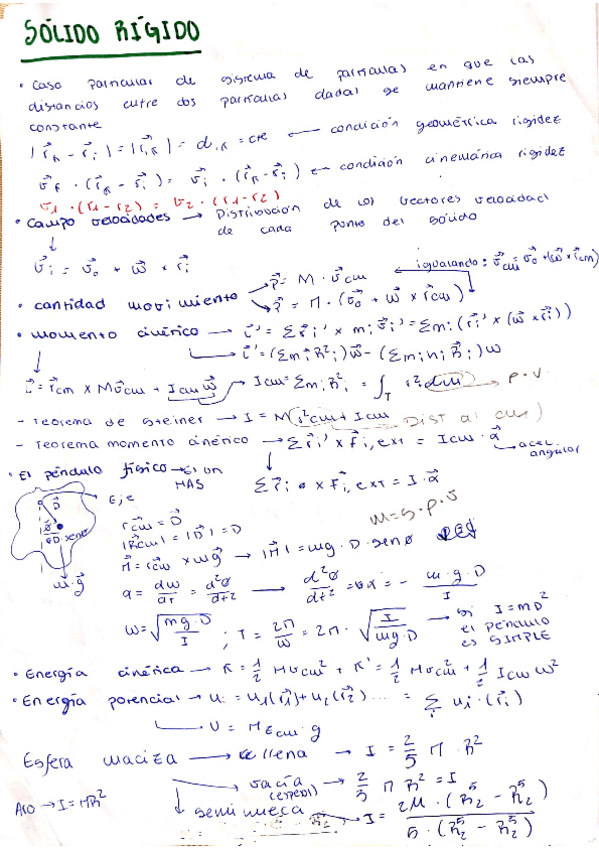 SÓLIDO RÍGIDO
• Caso particular de sistema de partículas en que las
distancias entre dos partículas dadas se mantiene siempre
constante
|r⃗k - r⃗i| = |r⃗ik| = dik = cte ← condición geométrica rigidez
v⃗k · (r⃗k - r⃗i) = v⃗i · (r⃗k - r⃗i) ← condición cinemática rigidez
v1 · (r1 - r2) = v2 · (r1 - r2)
• Campo velocidades → Distribución de los vectores velocidad
de cada punto del sólido
↓
v⃗i = v⃗o + w⃗ × r⃗i
igualando: v⃗cm = v⃗o + (w⃗ × r⃗cm)
• cantidad movimiento → P⃗ = M · v⃗cm
→ P⃗ = M · (v⃗o + w⃗ × r⃗cm)
• momento cinético → L⃗' = Σ r⃗i' × mi v⃗i' = Σmi (r⃗i' × (w⃗ × r⃗i'))
↓ → L⃗' = (Σ mi R²i) w⃗ - (Σmi hi R⃗i) w
L⃗ = r⃗cm × M v⃗cm + Icm w⃗ → Icm = Σmi R²i = ∫T r² dm → ρ · V
- Teorema de Steiner → I = M r²cm + Icm DIST al cm
- Teorema momento cinético → Σ r⃗i' × F⃗i,ext = Icm · α⃗ → acel. angular
↓
Σ r⃗i × F⃗i,ext = I · α⃗
• El péndulo físico → Es un
MAS
Eje
m = S · ρ · V
D⃗
r⃗cm = D⃗
|R⃗cm| = |D⃗| = D
M⃗ = r⃗cm × mg⃗ → |M⃗| = mg · D · senø
m⃗ · g⃗
α = dw/dt = d²ø/dt² → d²ø/dt² = α = - m · g · D / I
w = √(mg · D / I) ; T = 2π/w = 2π · √(I / mg · D) → si I = mD²
el péndulo
es SIMPLE
• Energía cinética → K = 1/2 M vcm² + K' = 1/2 M vcm² + 1/2 Icm w²
• Energía potencial → ui = u1(r⃗1) + u2(r⃗2) .... = Σi ui · (r⃗i)
→ U = M zcm · g
Esfera maciza → llena → I = 2/5 M · R²
→ vacía → 2/3 M R² = I
Aro → I = MR²
→ semihueca → I = 2M · (R⁵2 - R⁵2) / 5 · (R⁵2 - R⁵2)